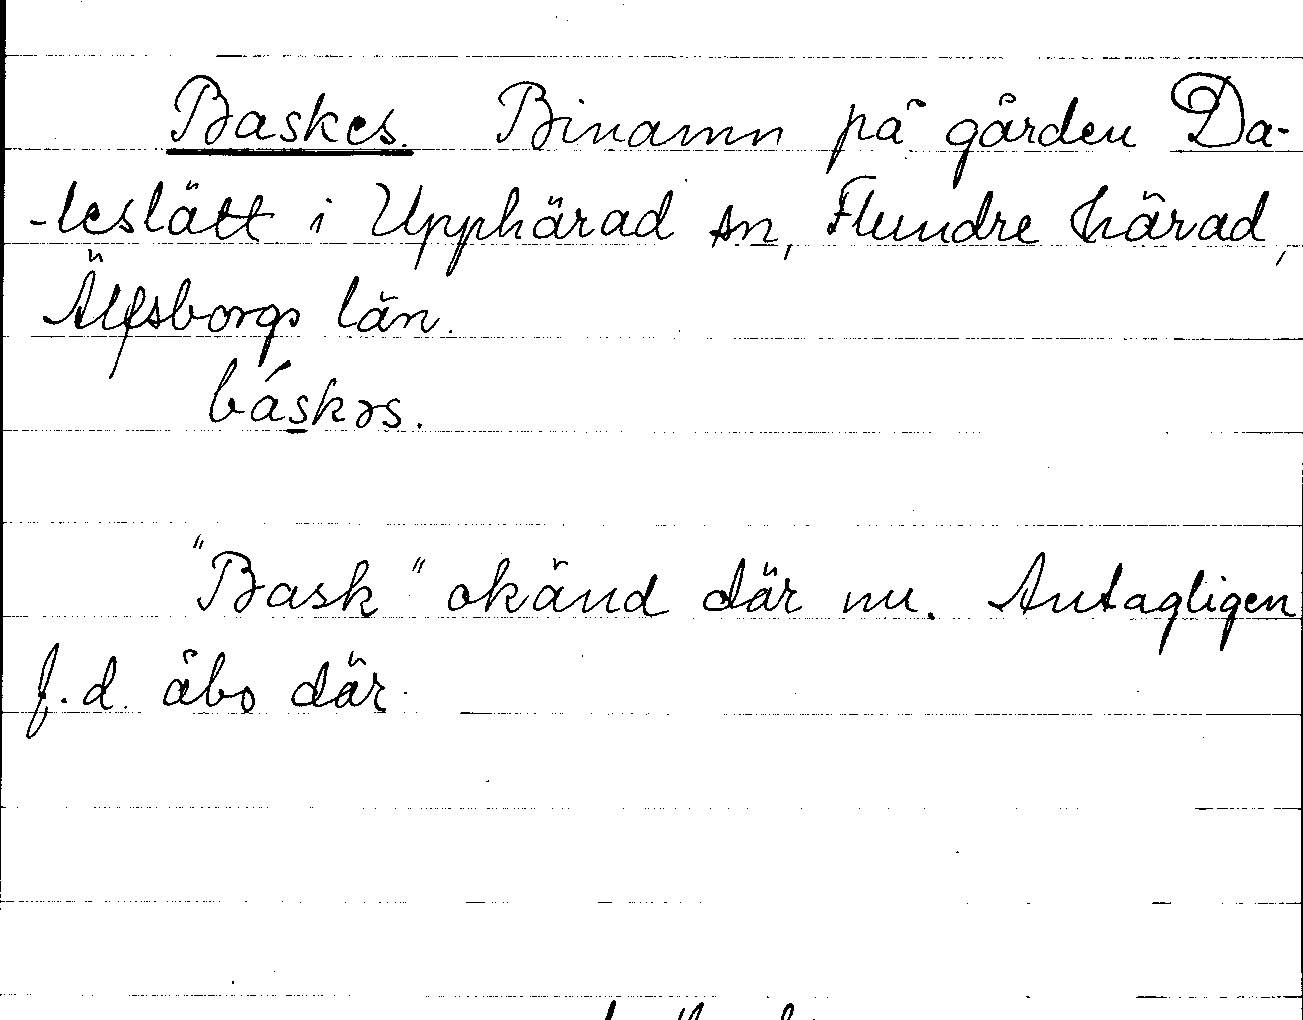 Baskes. Binamn på gården Da-
-leslätt i Upphärad sn, Flundre härad,
Älfsborgs län.
báskəs.
"Bask" okänd där nu. Antagligen
f.d. åbo där